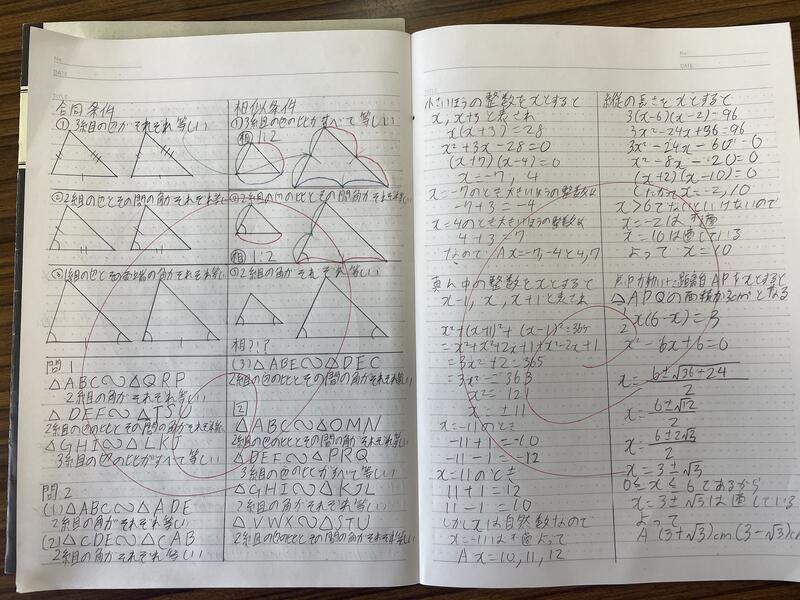 No.
DATE
TITLE
合同条件
①3組の辺がそれぞれ等しい
②2組の辺とその間の角がそれぞれ等しい
③1組の辺とその両端の角がそれぞれ等しい
問1
△ABC∽△QRP
2組の角がそれぞれ等しい
△DEF∽△TSU
2組の辺の比とその間の角がそれぞれ等しい
△GHI∽△LKJ
3組の辺の比がすべて等しい
問2
(1)△ABC∽△ADE
2組の角がそれぞれ等しい
(2)△CDE∽△CAB
2組の角がそれぞれ等しい
相似条件
①3組の辺の比がすべて等しい
相 1:2
②2組の辺の比とその間の角がそれぞれ等しい
相 1:2
③2組の角がそれぞれ等しい
相?:?
(3)△ABE∽△DEC
2組の辺の比とその間の角がそれぞれ等しい
2
△ABC∽△OMN
2組の辺の比とその間の角がそれぞれ等しい
△DEF∽△PRQ
3組の辺の比がすべて等しい
△GHI∽△KJL
2組の角がそれぞれ等しい
△VWX∽△STU
2組の辺の比とその間の角がそれぞれ等しい
No.
DATE
TITLE
小さいほうの整数をxとすると
x, x+3と表され
x(x+3)=28
x²+3x-28=0
(x+7)(x-4)=0
x=-7, 4
x=-7のとき大きいほうの整数は
-7+3=-4
x=4のとき大きいほうの整数は
4+3=7
なので A x=-7,-4と4,7
真ん中の整数をxとすると
x-1, x, x+1と表され
x²+(x+1)²+(x-1)²=365
=x²+x²+2x+1+x²-2x+1
=3x²+2=365
=3x²=363
x²=121
x=±11
x=-11のとき
-11+1=-10
-11-1=-12
x=11のとき
11+1=12
11-1=10
しかしxは自然数なので
x=-11は不適 よって
A x=10,11,12
縦の長さをxとすると
3(x-6)(x-2)=96
3x²-24x+36=96
3x²-24x-60=0
x²-8x-20=0
(x+2)(x-10)=0
したがってx=-2,10
x>6でないといけないので
x=-2は不適
x=10は適している
よって x=10
点Pが動いた距離APをxとすると
△APQの面積が3cm²となる
1/2x(6-x)=3
x²-6x+6=0
x=6±√36-24/2
x=6±√12/2
x=6±2√3/2
x=3±√3
0≤x≤6であるから
x=3±√3は適している
よって
A (3+√3)cm (3-√3)cm